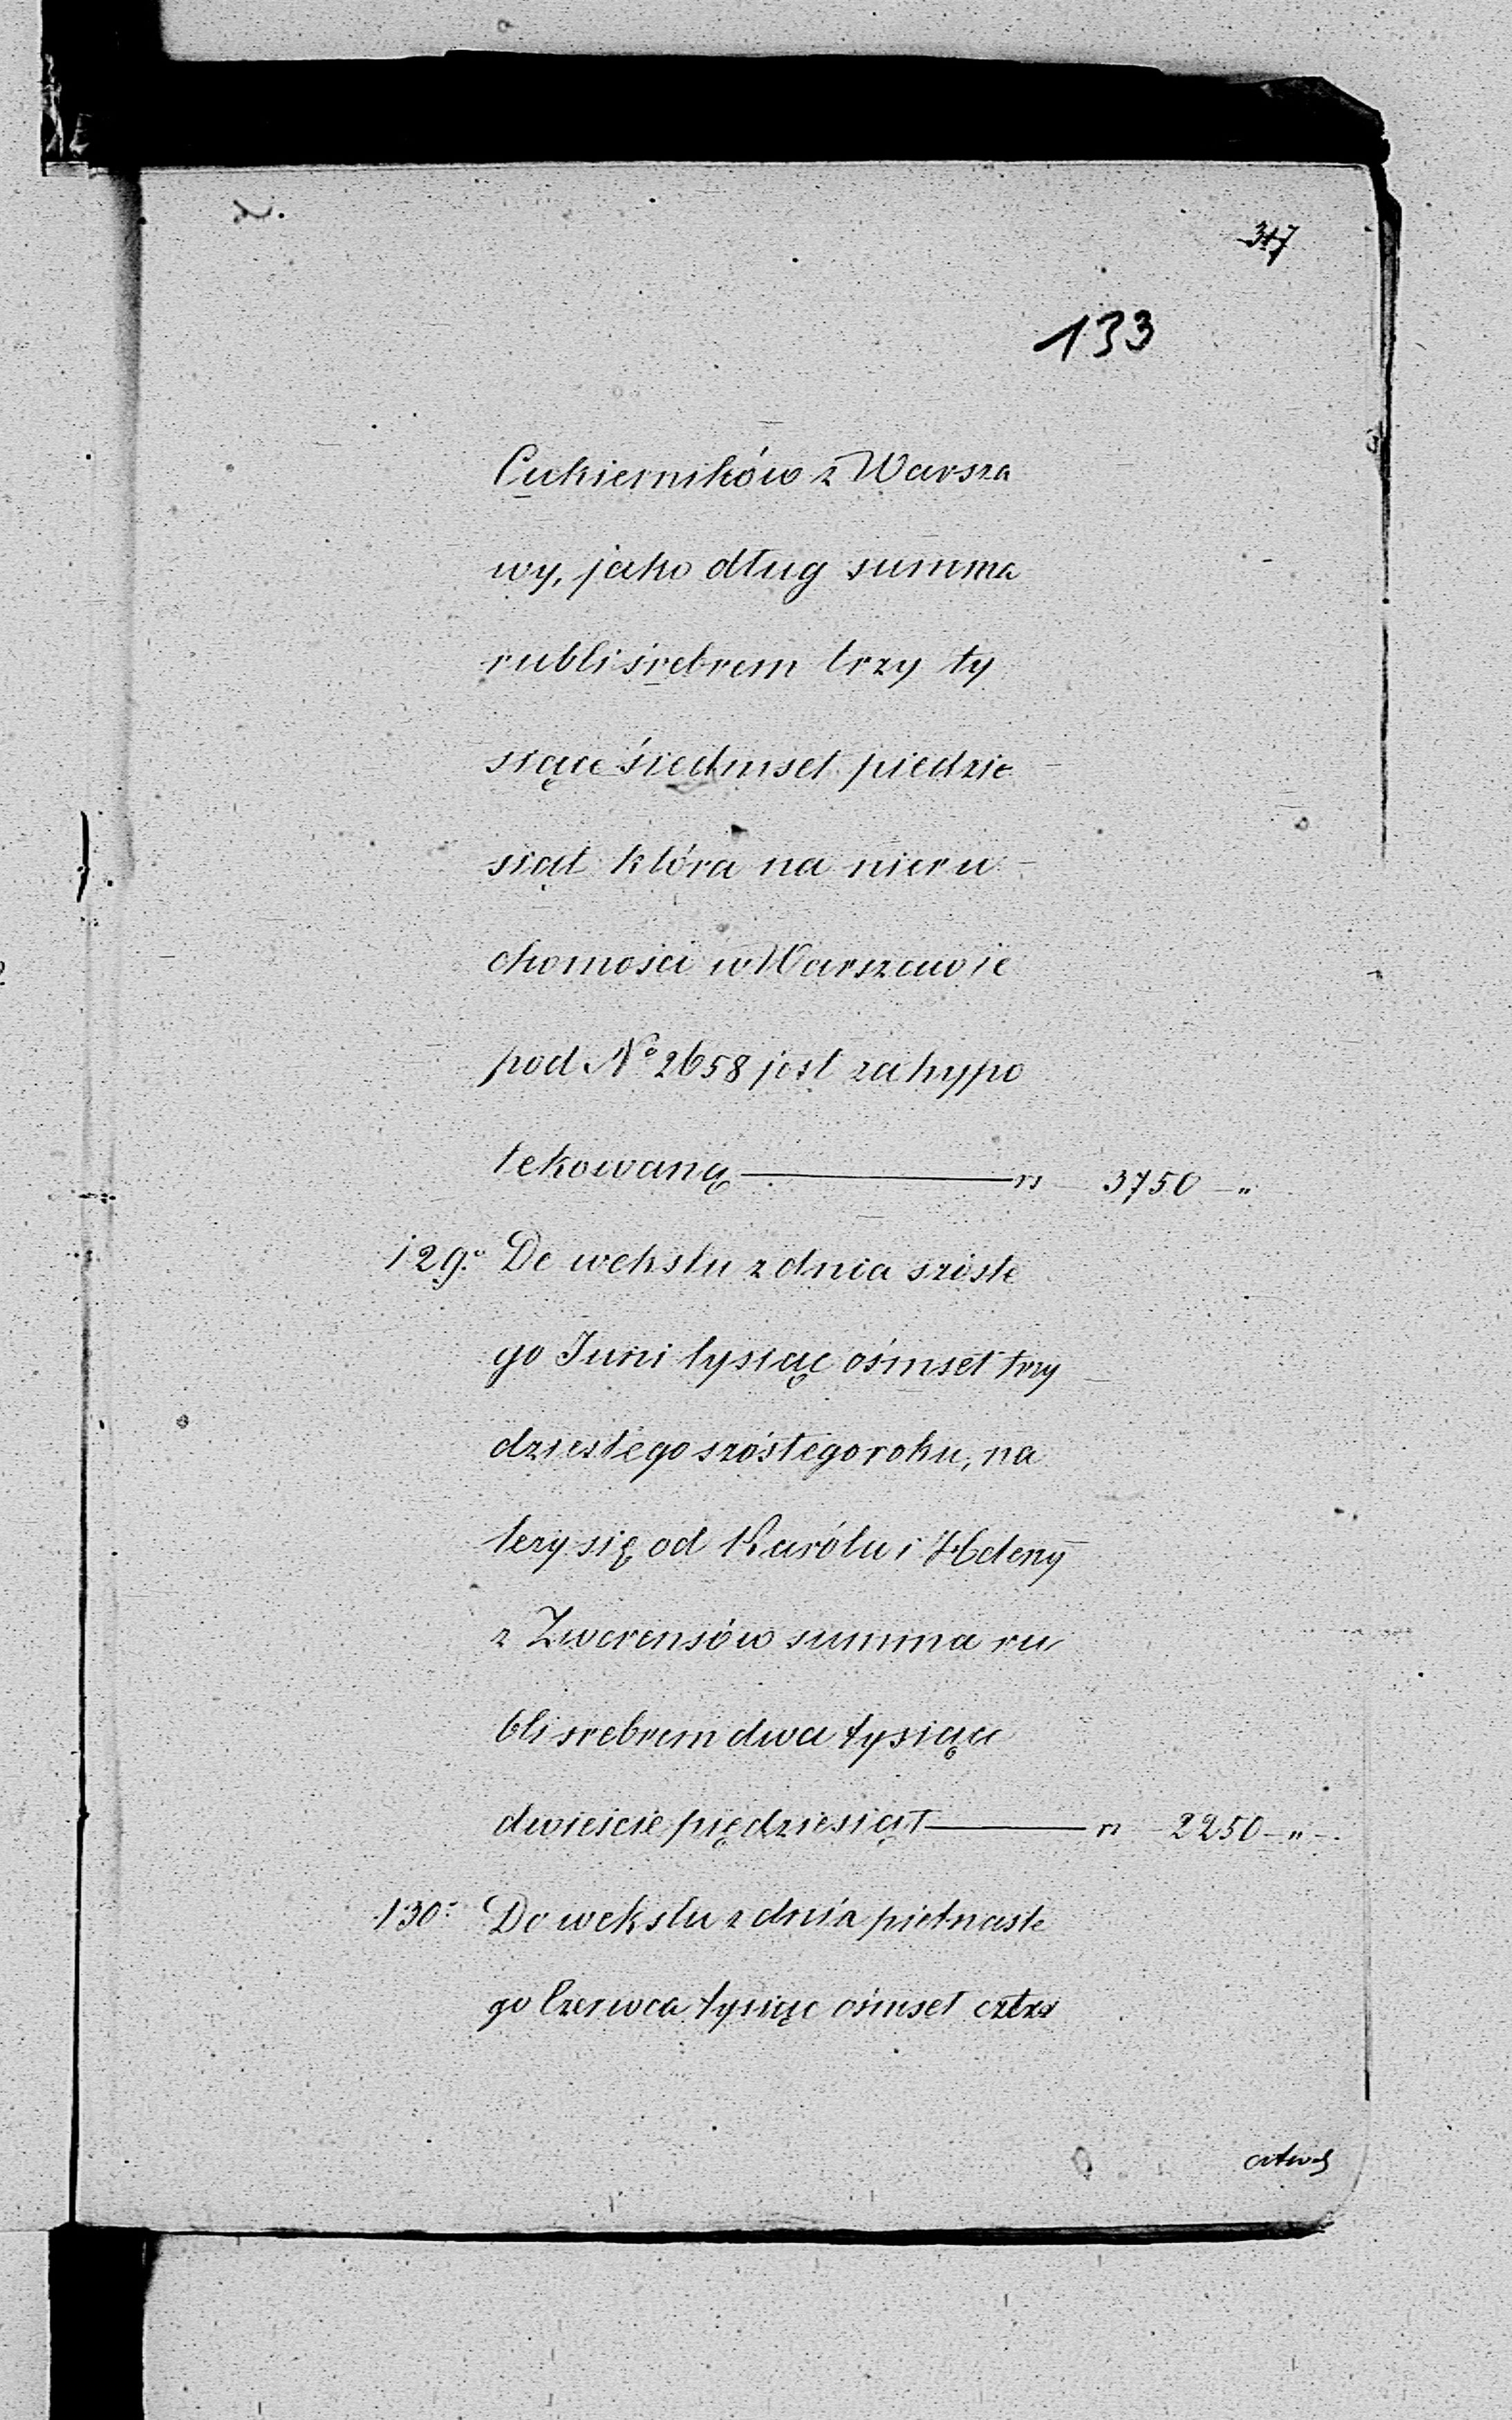 133
Cukierników z Warsza
wy, jako dług summa
rubli śrebrem trzy ty
siące śiedmset piedzie
siąt która na nieru -
chomości w Warszawie
pod Nº 2658 jest zahypo
tekowaną rs 3750 - "
129º Do wekslu z dnia szóste
go Juni tysiąc ośmset trzy
dziestego szóstego roku, na
leży się od Karóla i Heleny
z Zwerensów summa ru
bli srebrem dwa tysiące
dwieście piędziesiąt rs 2250 - " -
130º Do wekslu z dnia pietnaste
go Czerwca tysiąc ośmset